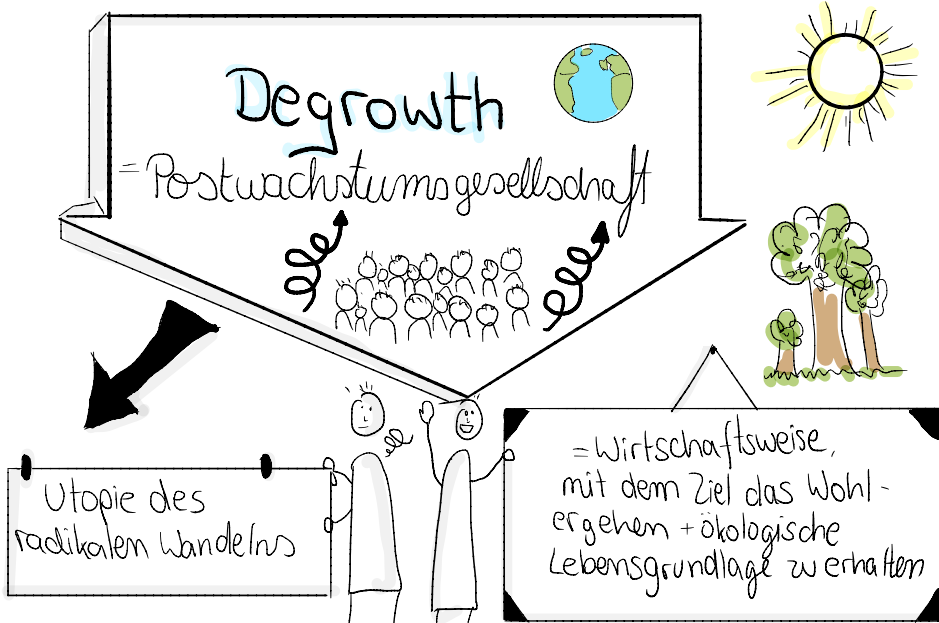 Degrowth
= Postwachstumsgesellschaft
Utopie des
radikalen Wandelns
= Wirtschaftsweise,
mit dem Ziel das Wohl-
ergehen + ökologische
Lebensgrundlage zu erhalten